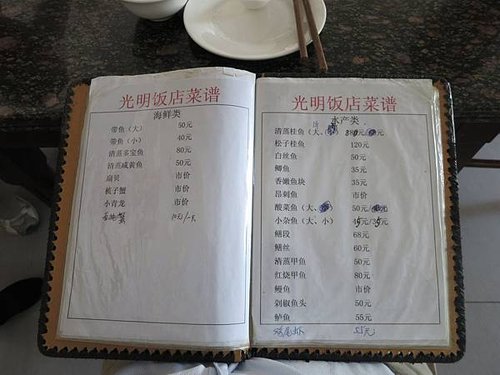 光明饭店菜谱
海鲜类
带鱼（大） 50元
带鱼（小） 40元
清蒸多宝鱼 80元
清蒸咸黄鱼 50元
扇贝 市价
梭子蟹 市价
小青龙 市价
10元/一只
光明饭店菜谱
水产类
清蒸桂鱼（大、
松子桂鱼 120元
白丝鱼 50元
鲫鱼 35元
香嫩鱼块 35元
昂刺鱼 市价
酸菜鱼（大、 50元/
小杂鱼（大、小） 45元/35元
鳝段 68元
鳝丝 60元
清蒸甲鱼 50元
红烧甲鱼 80元
鳗鱼 市价
剁椒鱼头 50元
鲈鱼 55元
凤尾虾 55元